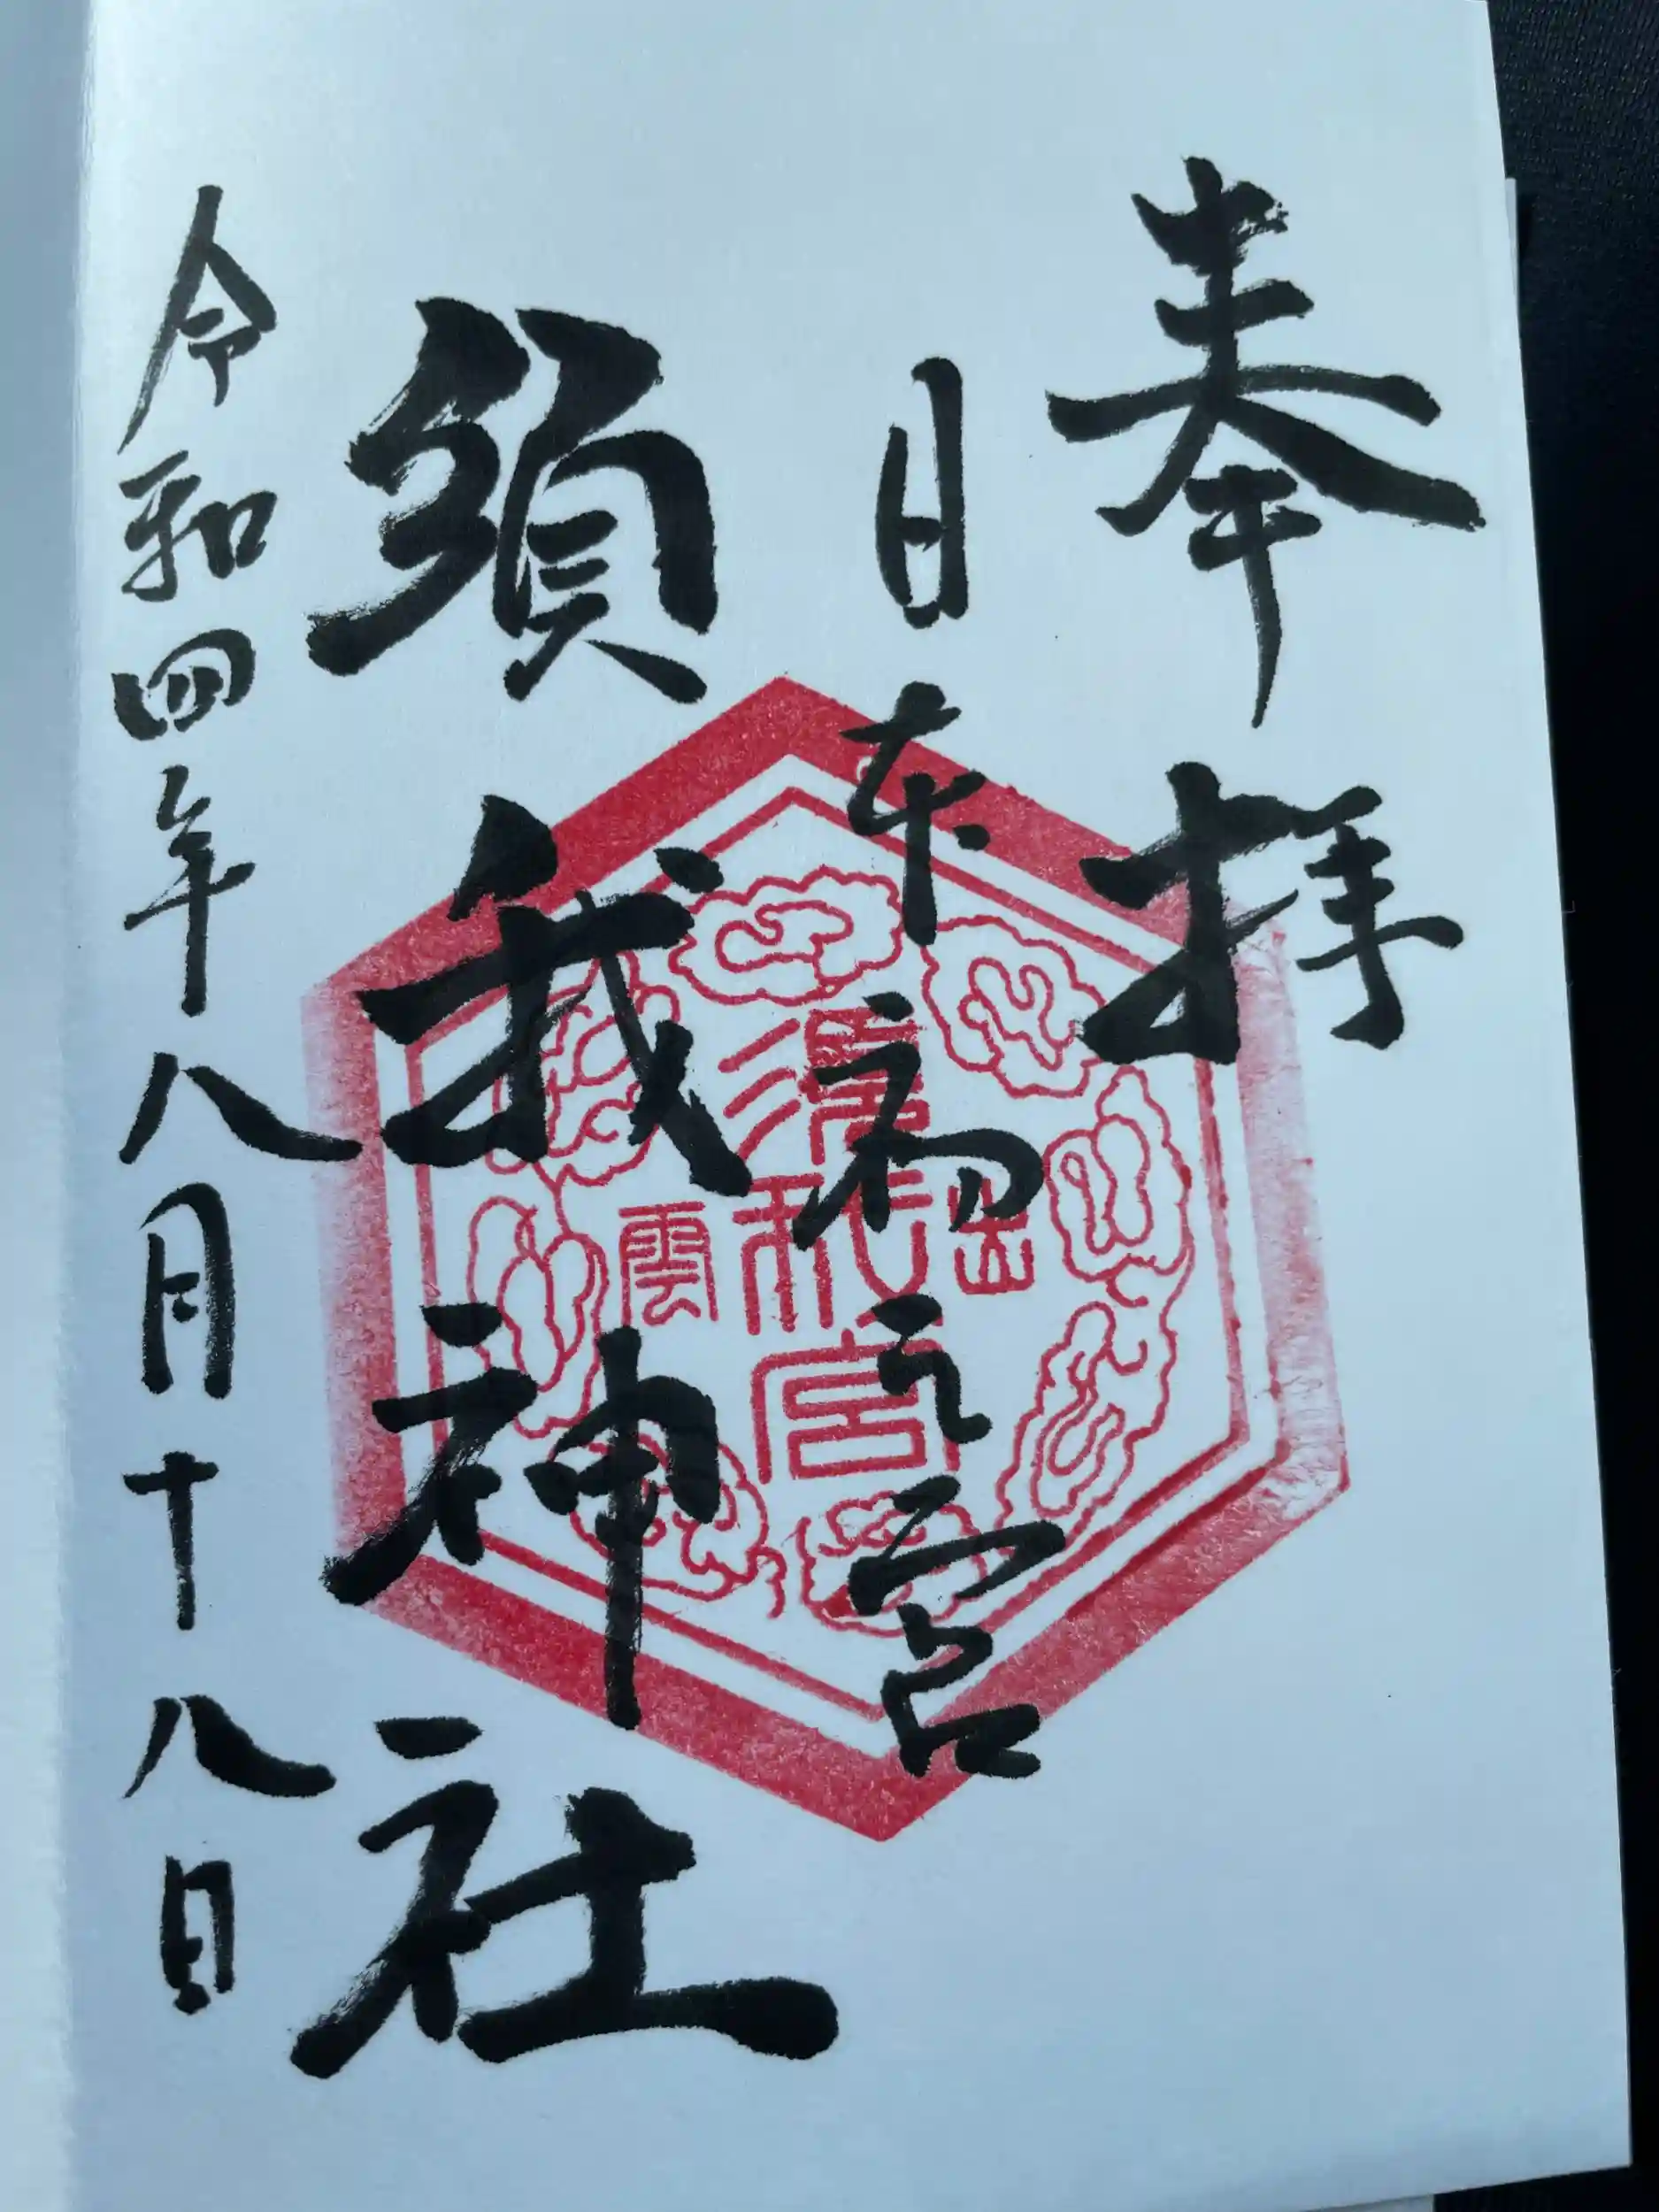 奉拝
日本初之宮
須我神社
令和四年八月十八日
出雲
須我宮